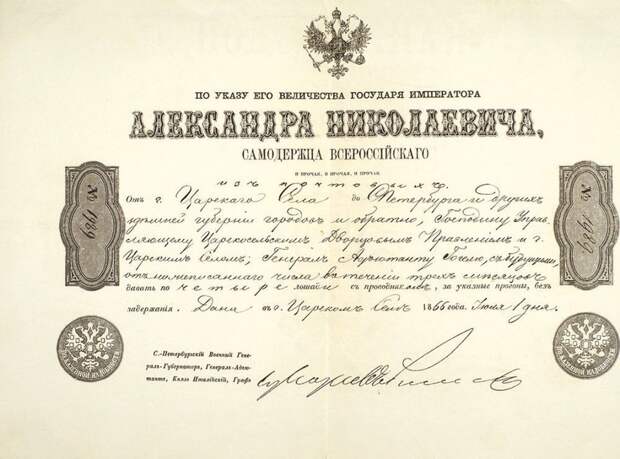 ПО УКАЗУ ЕГО ВЕЛИЧЕСТВА ГОСУДАРЯ ИМПЕРАТОРА
АЛЕКСАНДРА НИКОЛАЕВИЧА,
САМОДЕРЖЦА ВСЕРОССІЙСКАГО
и прочая, и прочая, и прочая
изъ почтовыхъ
Отъ г. Царскаго Села до С Петербурга и другихъ
здѣшней губерніи городовъ и обратно, Господину Управ-
ляющему Царскосельскимъ Дворцовымъ Правленіемъ и г.
Царскимъ Селомъ, Генералъ Адъютанту Гогелю, съ будущимъ,
отъ нижеписаннаго числа въ теченіи трехъ мѣсяцовъ
давать по четыре лошади съ проводникомъ, за указные прогоны, безъ
задержанія. Дана въ г. Царскомъ Селѣ 1866 года. Іюня 1 дня.
№ 1989
№ 1989
ДЛЯ КАЗЕННОЙ НАДОБНОСТИ
ДЛЯ КАЗЕННОЙ НАДОБНОСТИ
С.-Петербургскій Военный Гене-
ралъ-Губернаторъ, Генералъ-Адъю-
тантъ, Князь Италійскій, Графъ